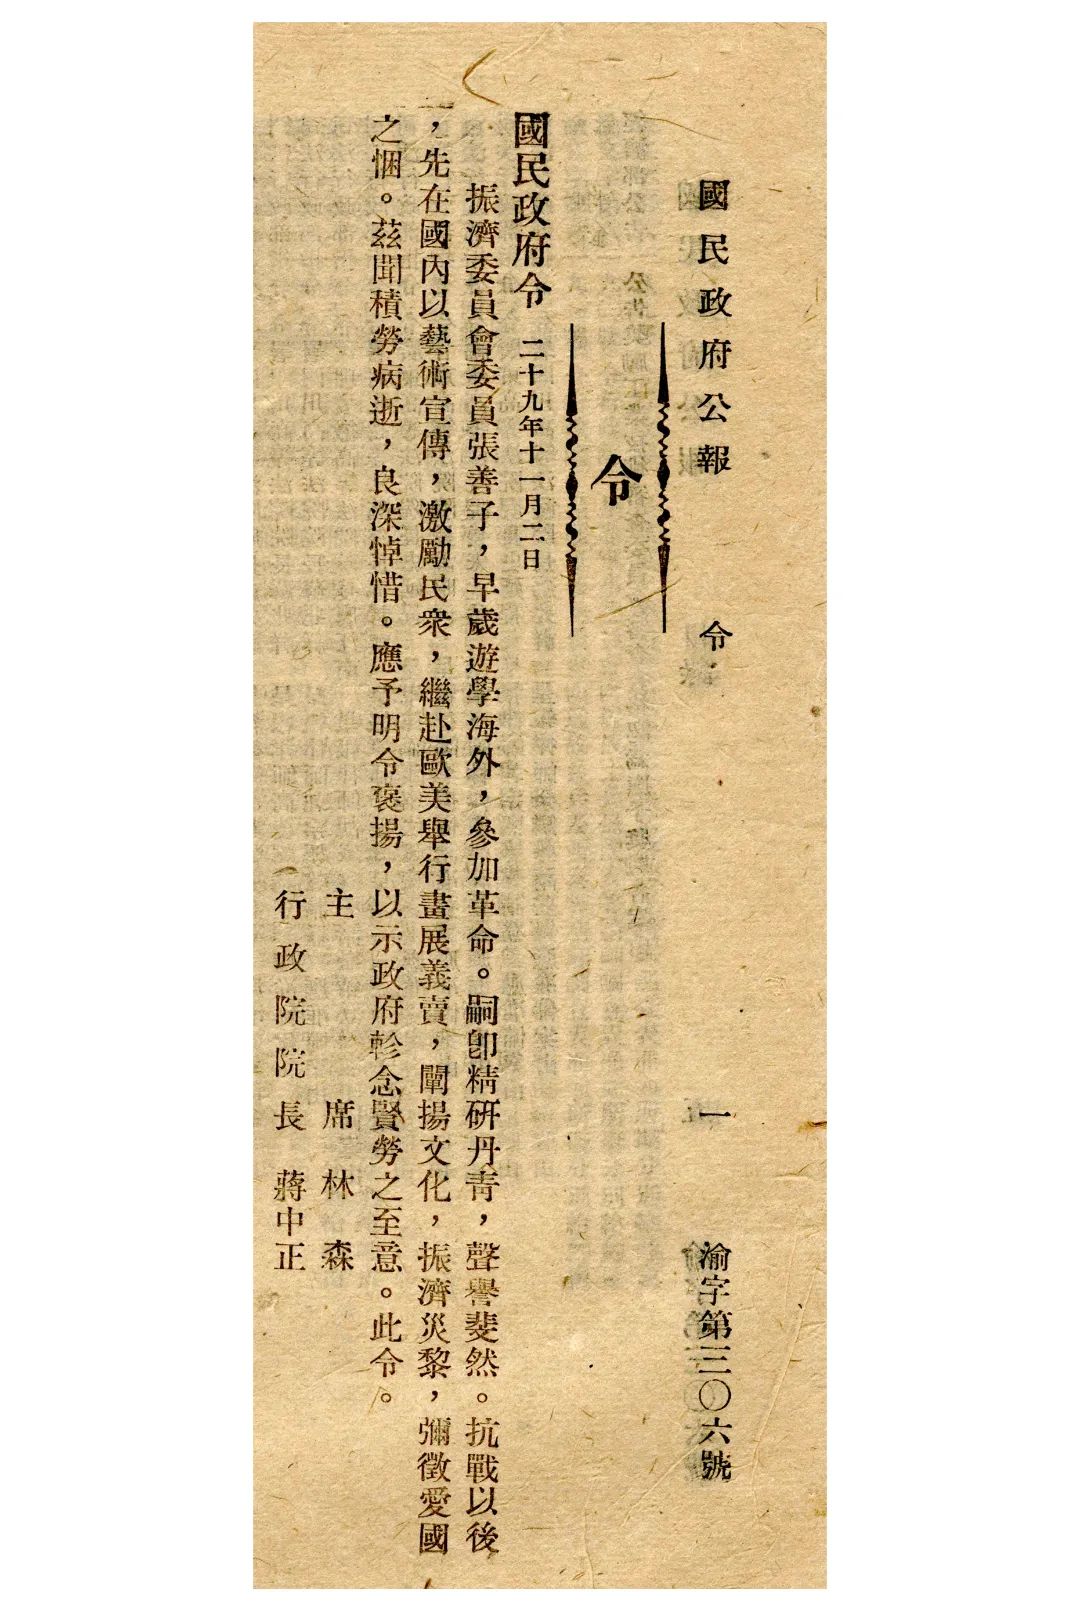 國民政府公報 令 一 渝字第三〇六號
令
國民政府令 二十九年十一月二日
振濟委員會委員張善子，早歲遊學海外，參加革命。嗣卽精研丹青，聲譽斐然。抗戰以後
，先在國內以藝術宣傳，激勵民衆，繼赴歐美舉行畫展義賣，闡揚文化，振濟災黎，彌徵愛國
之悃。茲聞積勞病逝，良深悼惜。應予明令褒揚，以示政府軫念賢勞之至意。此令。
主席 林森
行政院院長 蔣中正